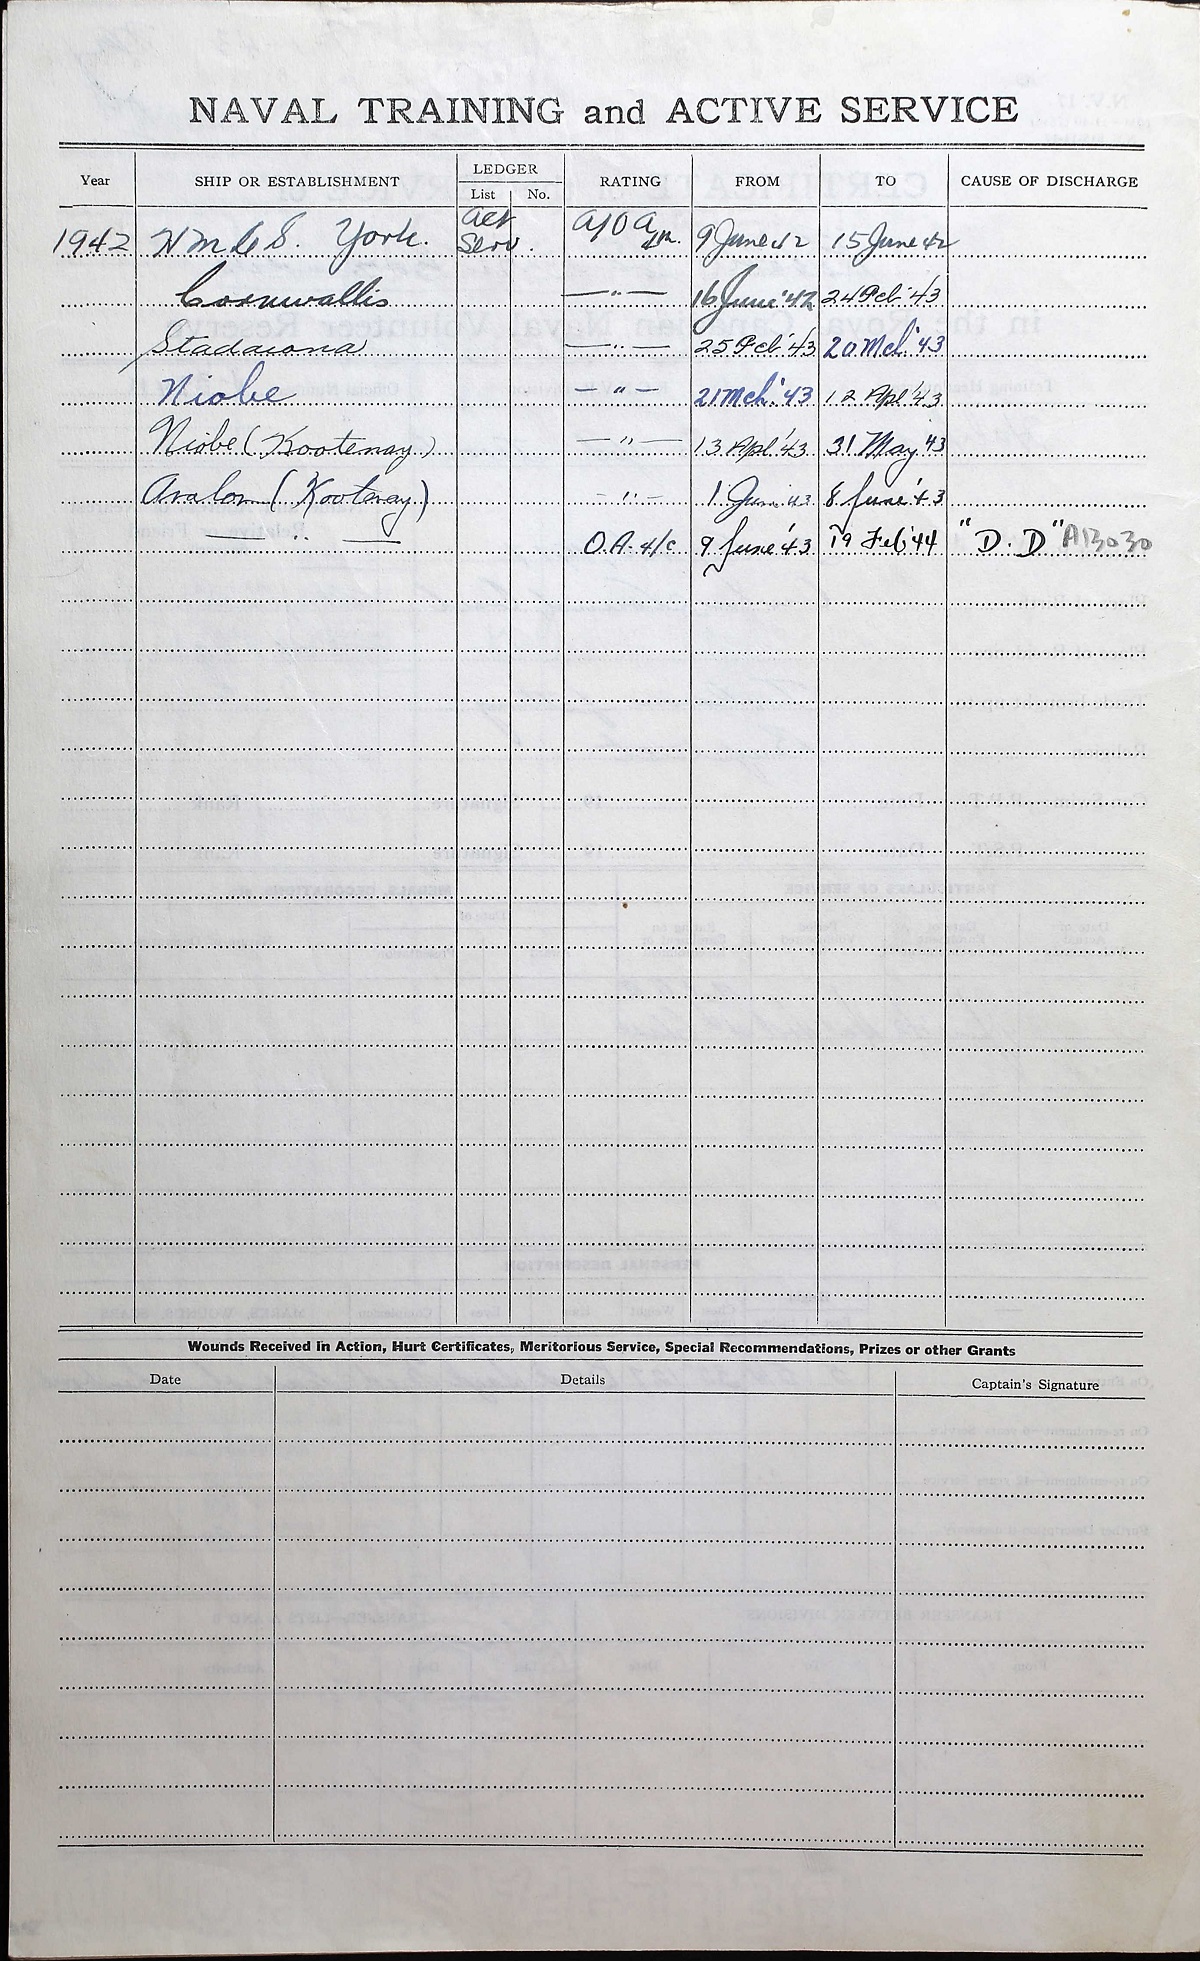 NAVAL TRAINING and ACTIVE SERVICE
Year SHIP OR ESTABLISHMENT LEDGER List No. RATING FROM TO CAUSE OF DISCHARGE
1942 H M C S. York. Act Serv. A/O A 4th. 9 June 42 15 June 42
Cornwallis — " — 16 June '42 24 Feb '43
Stadacona — " — 25 Feb '43 20 Mch. '43
Niobe — " — 21 Mch. '43 12 Apl '43
Niobe (Kootenay) — " — 13 Apl '43 31 May '43
Avalon (Kootenay) — " — 1 June 43 8 June '43
— " — O.A. 4/c 9 June '43 19 Feb '44 "D.D" A13030
Wounds Received in Action, Hurt Certificates, Meritorious Service, Special Recommendations, Prizes or other Grants
Date Details Captain's Signature